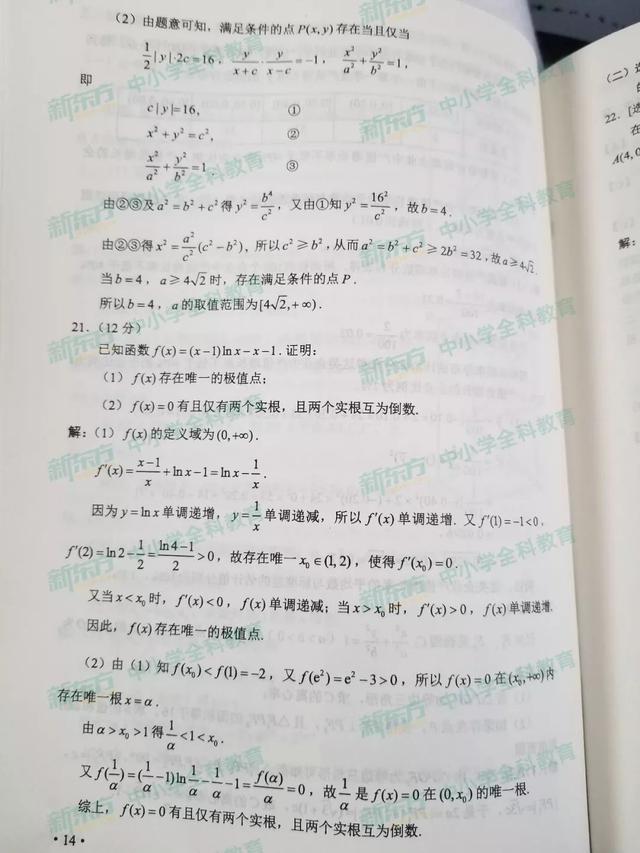 (2) 由题意可知，满足条件的点P(x,y)存在当且仅当
1/2|y|·2c=16，y/(x+c)·y/(x-c)=-1，x²/a²+y²/b²=1，
即
c|y|=16， ①
x²+y²=c²， ②
x²/a²+y²/b²=1. ③
由②③及a²=b²+c²得y²=b⁴/c²，又由①知y²=16²/c²，故b=4.
由②③得x²=a²/c²(c²-b²)，所以c²≥b²，从而a²=b²+c²≥2b²=32，故a≥4√2.
当b=4，a≥4√2时，存在满足条件的点P.
所以b=4，a的取值范围为[4√2,+∞).
21.（12分）
已知函数f(x)=(x-1)lnx-x-1.证明：
(1) f(x)存在唯一的极值点；
(2) f(x)=0有且仅有两个实根，且两个实根互为倒数.
解：(1) f(x)的定义域为(0,+∞).
f′(x)=(x-1)/x+lnx-1=lnx-1/x.
因为y=lnx单调递增，y=1/x单调递减，所以f′(x)单调递增.又f′(1)=-1<0，
f′(2)=ln2-1/2=(ln4-1)/2>0，故存在唯一x₀∈(1,2)，使得f′(x₀)=0.
又当x<x₀时，f′(x)<0，f(x)单调递减；当x>x₀时，f′(x)>0，f(x)单调递增.
因此，f(x)存在唯一的极值点.
(2) 由(1)知f(x₀)<f(1)=-2，又f(e²)=e²-3>0，所以f(x)=0在(x₀,+∞)内
存在唯一根x=α.
由α>x₀>1得1/α<1<x₀.
又f(1/α)=(1/α-1)ln1/α-1/α-1=f(α)/α=0，故1/α是f(x)=0在(0,x₀)的唯一根.
综上，f(x)=0有且仅有两个实根，且两个实根互为倒数.
·14·
（二）选
22.[选
在
A(4,0
解：
新东方 中小学全科教育